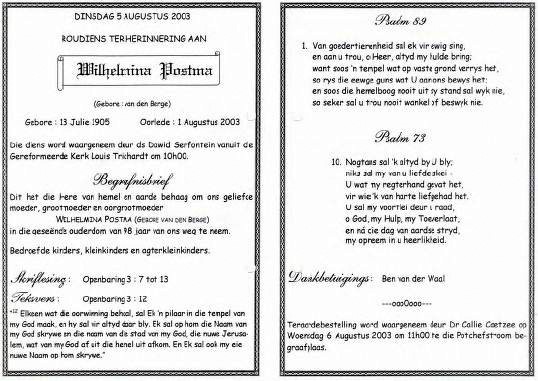 DINSDAG 5 AUGUSTUS 2003
ROUDIENS TER HERINNERING AAN
Wilhelmina Postma
(Gebore : van den Berge)
Gebore : 13 Julie 1905 Oorlede : 1 Augustus 2003
Die diens word waargeneem deur ds Dawid Serfontein vanuit de
Gereformeerde Kerk Louis Trichardt om 10h00.
Begrafnisbrief
Dit het die Here van hemel en aarde behaag om ons geliefe
moeder, grootmoeder en oorgrootmoeder
WILHELMINA POSTMA (GEBORE VAN DEN BERGE)
in die geseënde ouderdom van 98 jaar van ons weg te neem.
Bedroefde kinders, kleinkinders en agterkleinkinders.
Skriflesing : Openbaring 3 : 7 tot 13
Teksvers : Openbaring 3 : 12
"12 Elkeen wat die oorwinning behaal, sal Ek 'n pilaar in die tempel van
my God maak, en hy sal vir altyd daar bly. Ek sal op hom die Naam van
my God skrywe en die naam van die stad van my God, die nuwe Jerusa-
lem, wat van my God af uit die hemel uit afkom. En Ek sal ook my eie
nuwe Naam op hom skrywe."
Psalm 89
1. Van goedertierenheid sal ek vir ewig sing,
en aan u trou, o Heer, altyd my hulde bring;
want soos 'n tempel wat op vaste grond verrys het,
so rys die eewge guns wat U aan ons bewys het;
en soos die hemelboog nooit uit sy stand sal wyk nie,
so seker sal u trou nooit wankel of beswyk nie.
Psalm 73
10. Nogtans sal 'k altyd by U bly;
niks sal my van u liefde skei -
U wat my regterhand gevat het,
vir wie 'k van harte liefgehad het.
U sal my voortlei deur u raad,
o God, my Hulp, my Toeverlaat,
en ná die dag van aardse stryd,
my opneem in u heerlikheid.
Dankbetuigings : Ben van der Waal
---oooOooo---
Teraardebestelling word waargeneem deur Dr Callie Coetzee op
Woensdag 6 Augustus 2003 om 11h00 te die Potchefstroom be-
graafplaas.